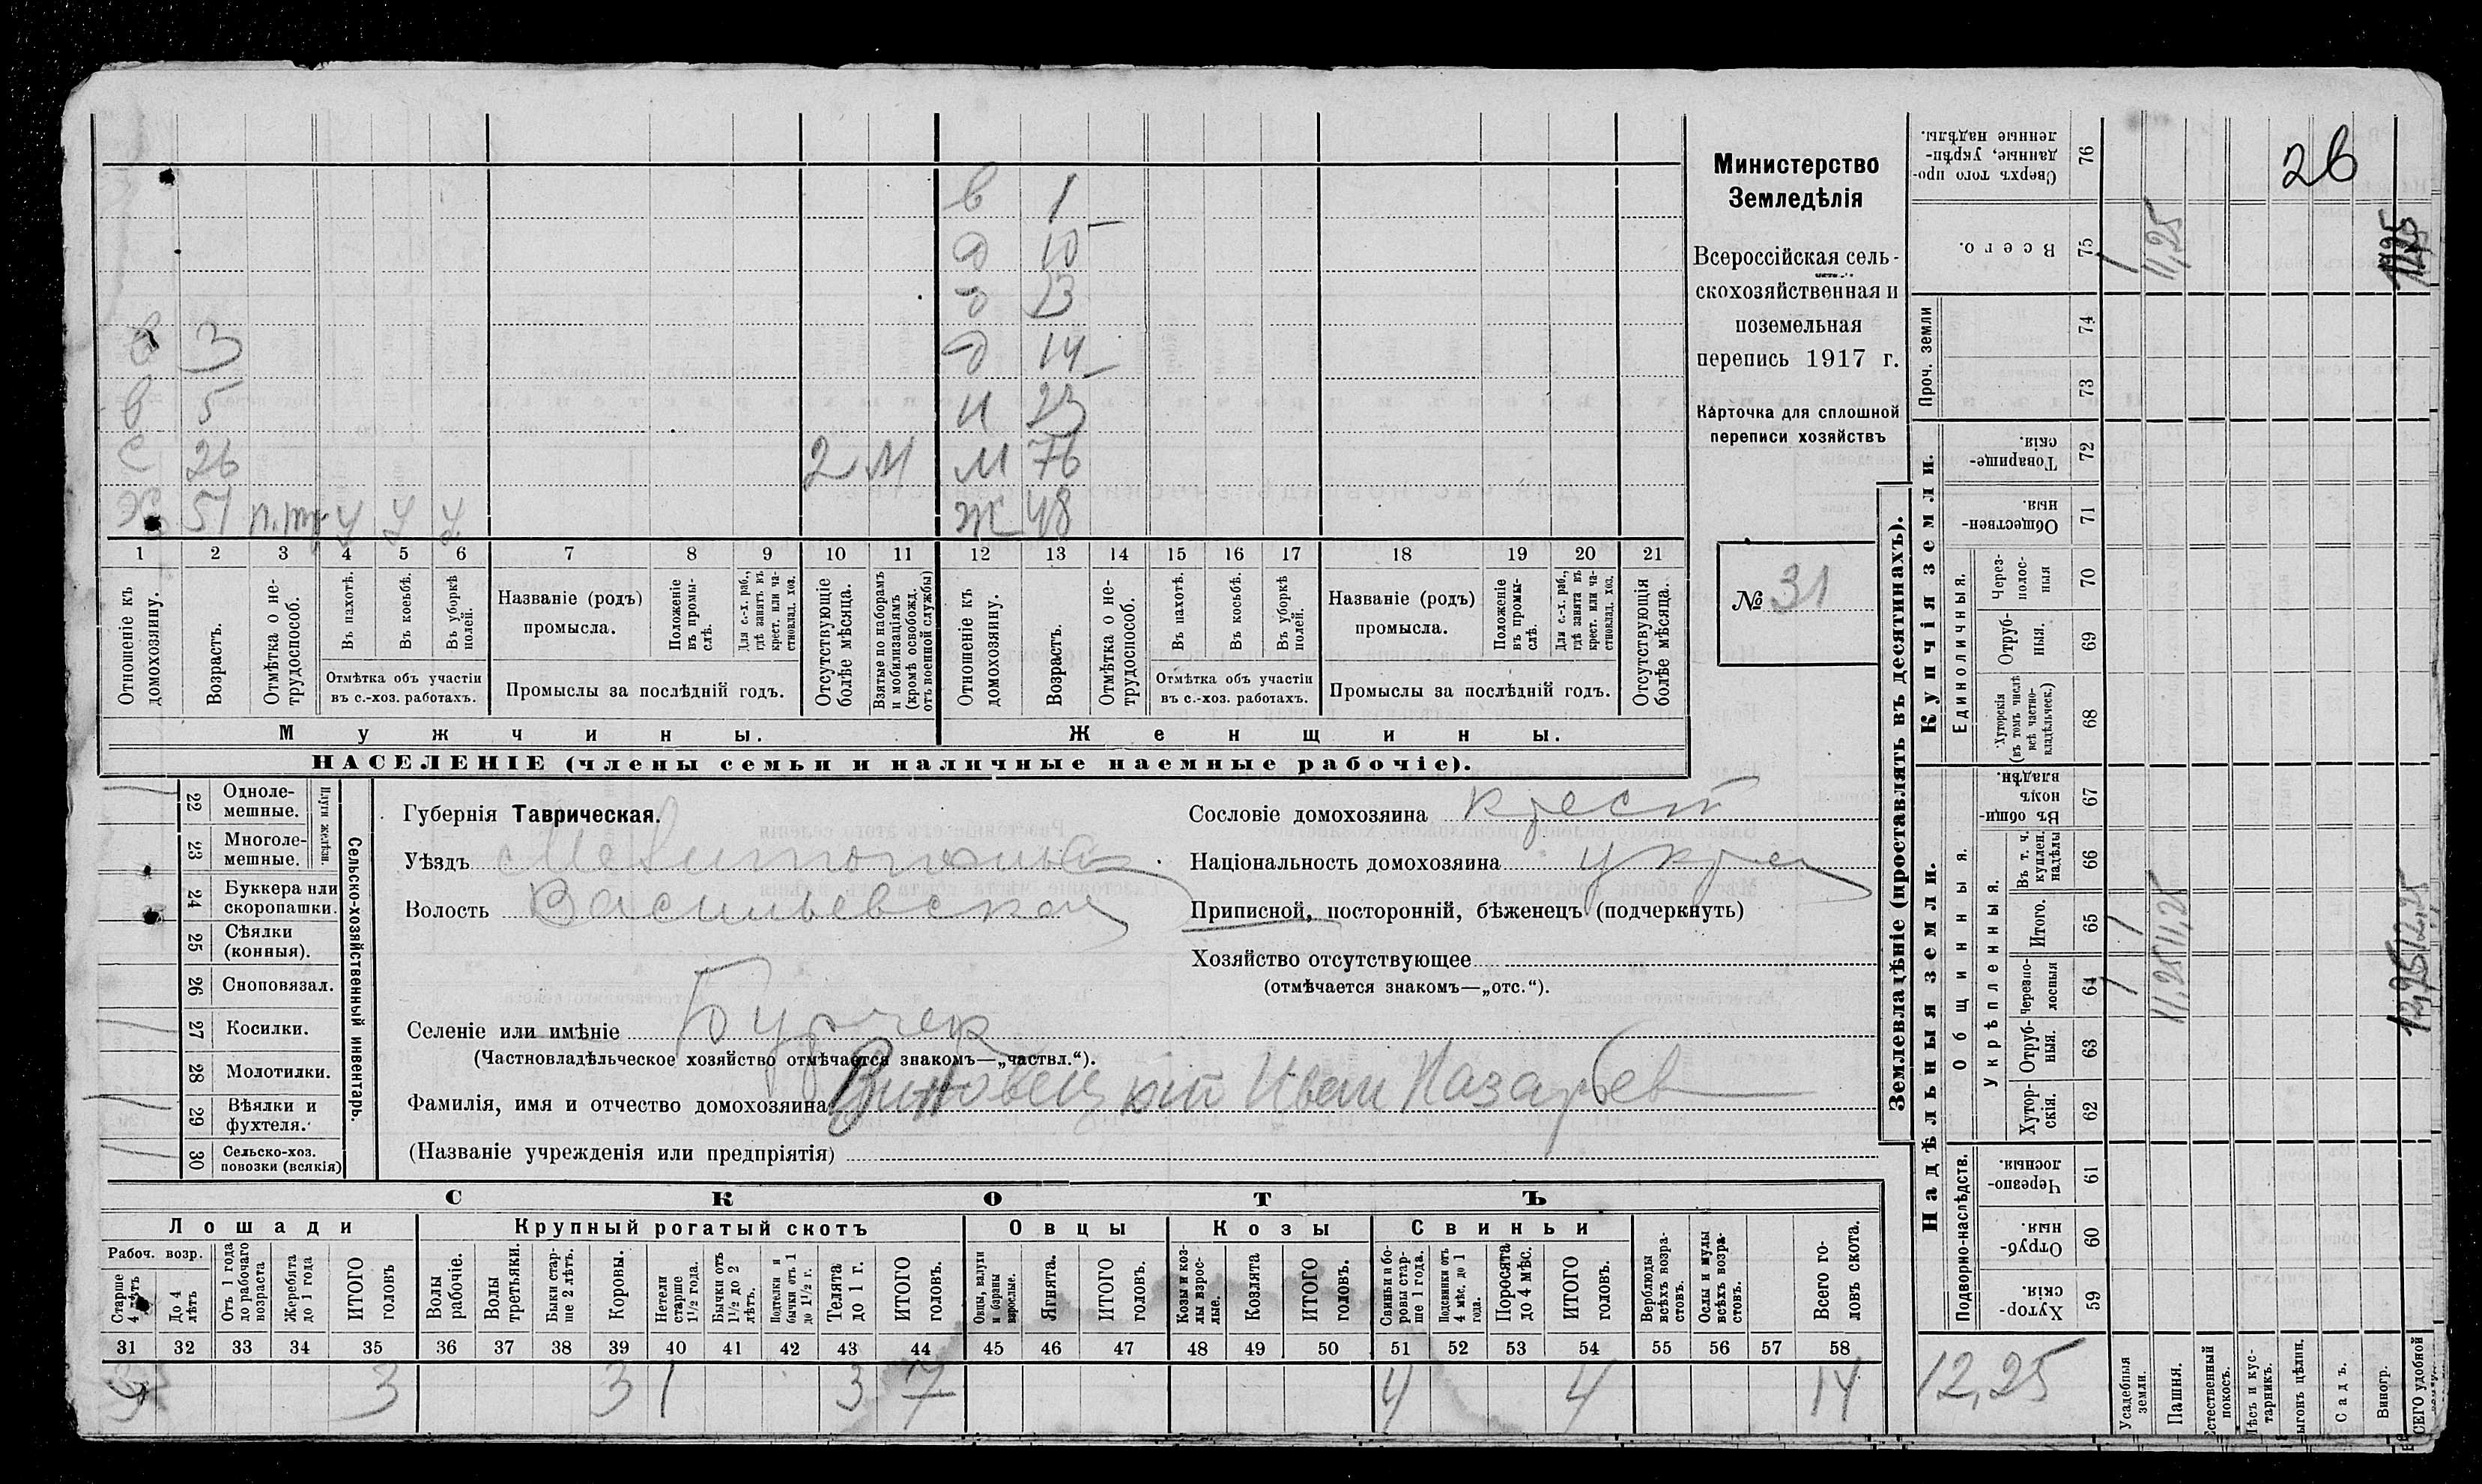 в 1
д 10
д 13
в 3 д 14
в 5 и 23
с 26 2 м м 76
ж 51 п.тр у у у ж 48
1 2 3 4 5 6 7 8 9 10 11 12 13 14 15 16 17 18 19 20 21
Отношеніе къ домохозяину.
Возрастъ.
Отмѣтка о не-трудоспособ.
Въ пахотѣ.
Въ косьбѣ.
Въ уборкѣ полей.
Отмѣтка объ участіи
въ с.-хоз. работахъ.
Названіе (родъ)
промысла.
Положеніе въ промы-слѣ.
Для с.-х. раб., гдѣ занятъ въ крест. или ча-стновлад. хоз.
Промыслы за послѣдній годъ.
Отсутствующіе болѣе мѣсяца.
Взятые по наборамъ и мобилизаціямъ (кромѣ освобожд. отъ военной службы)
Отношеніе къ домохозяину.
Возрастъ.
Отмѣтка о не-трудоспособ.
Въ пахотѣ.
Въ косьбѣ.
Въ уборкѣ полей.
Отмѣтка объ участіи
въ с.-хоз. работахъ.
Названіе (родъ)
промысла.
Положеніе въ промы-слѣ.
Для с.-х. раб., гдѣ занята въ крест. или ча-стновлад. хоз.
Промыслы за послѣдній годъ.
Отсутствующія болѣе мѣсяца.
Мужчины.
Женщины.
НАСЕЛЕНІЕ (члены семьи и наличные наемные рабочіе).
Министерство
Земледѣлія
Всероссійская сель-
скохозяйственная и
поземельная
перепись 1917 г.
Карточка для сплошной
переписи хозяйствъ
№ 31
22 Одноле-мешные.
23 Многоле-мешные.
Плуги желѣзн.
24 Буккера или скоропашки.
25 Сѣялки (конныя).
26 Сноповязал.
27 Косилки.
28 Молотилки.
29 Вѣялки и фухтеля.
30 Сельско-хоз. повозки (всякія)
Сельско-хозяйственный инвентарь.
Губернія Таврическая.
Уѣздъ Мелитопольск
Волость Васильевская
Селеніе или имѣніе Бурчек
(Частновладѣльческое хозяйство отмѣчается знакомъ—„частвл.“).
Фамилія, имя и отчество домохозяина Виновецкій Иван Назарьев
(Названіе учрежденія или предпріятія)
Сословіе домохозяина крест
Національность домохозяина укра
Приписной, посторонній, бѣженецъ (подчеркнуть)
Хозяйство отсутствующее
(отмѣчается знакомъ—„отс.“).
СКОТЪ
Лошади
Крупный рогатый скотъ
Овцы
Козы
Свиньи
Рабоч. возр.
Старше 4 лѣтъ
До 4 лѣтъ
Отъ 1 года до рабочаго возраста
Жеребята до 1 года
ИТОГО головъ
Волы рабочіе.
Волы третьяки.
Быки стар-ше 2 лѣтъ.
Коровы.
Нетели старше 1½ года.
Бычки отъ 1½ до 2 лѣтъ.
Подтелки и бычки отъ 1 до 1½ г.
Телята до 1 г.
ИТОГО головъ.
Овцы, валухи и бараны взрослые.
Ягнята.
ИТОГО головъ.
Козы и коз-лы взрос-лые.
Козлята
ИТОГО головъ.
Свиньи и бо-ровы стар-ше 1 года.
Подсвинки отъ 4 мѣс. до 1 года.
Поросята до 4 мѣс.
ИТОГО головъ.
Верблюды всѣхъ возра-стовъ.
Ослы и мулы всѣхъ возра-стовъ.
Всего го-ловъ скота.
31 32 33 34 35 36 37 38 39 40 41 42 43 44 45 46 47 48 49 50 51 52 53 54 55 56 57 58
3 3 3 1 3 7 4 4 14
Землевладѣніе (проставлять въ десятинахъ).
Надѣльныя земли.
Купчія земли.
Проч. земли
Сверхъ того про-данные, укрѣп-ленные надѣлы. 76
Всего. 75
74
73
Товарище-скія. 72
Обществен-ныя. 71
Единоличныя.
Через-полос-ныя 70
Отруб-ныя. 69
Хуторскія (въ томъ числѣ всѣ частно-владѣльческ.) 68
Общинныя.
Въ общи-номъ владѣн. 67
Укрѣпленныя.
Въ т. ч. куплен. надѣлы 66
Итого. 65
Черезпо-лосныя 64
Отруб-ныя. 63
Хутор-скія. 62
Подворно-наслѣдств.
Черезпо-лосныя. 61
Отруб-ныя. 60
Хутор-скія. 59
12,25
Усадебныя земли.
Пашня.
Естественный покосъ.
Лѣсъ и кус-тарникъ.
Выгонъ цѣлин.
Садъ.
Виногр.
ВСЕГО удобной
26
1 11,25
1 11,25
1 11,25
12,25
12,25